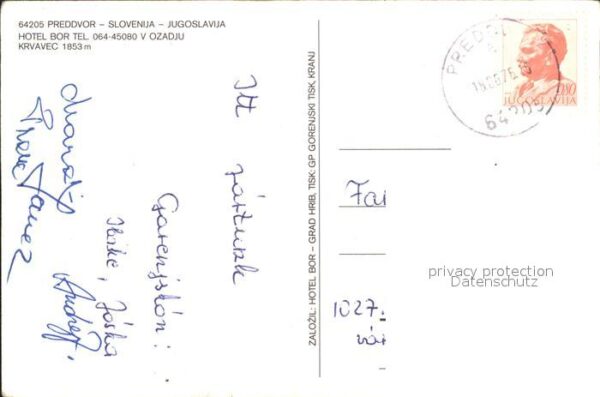 64205 PREDDVOR – SLOVENIJA – JUGOSLAVIJA
HOTEL BOR TEL. 064-45080 V OZADJU
KRVAVEC 1853 m
Itt
jártunk
Gorenjskón:
Ilike, Jóska
András,
Tamez
ZALOŽIL: HOTEL BOR – GRAD HRIB, TISK: GP GORENJSKI TISK KRANJ
PREDD
64205
0,80
JUGOSLAVIJA
Fa
1027.
vár
privacy protection
Datenschutz